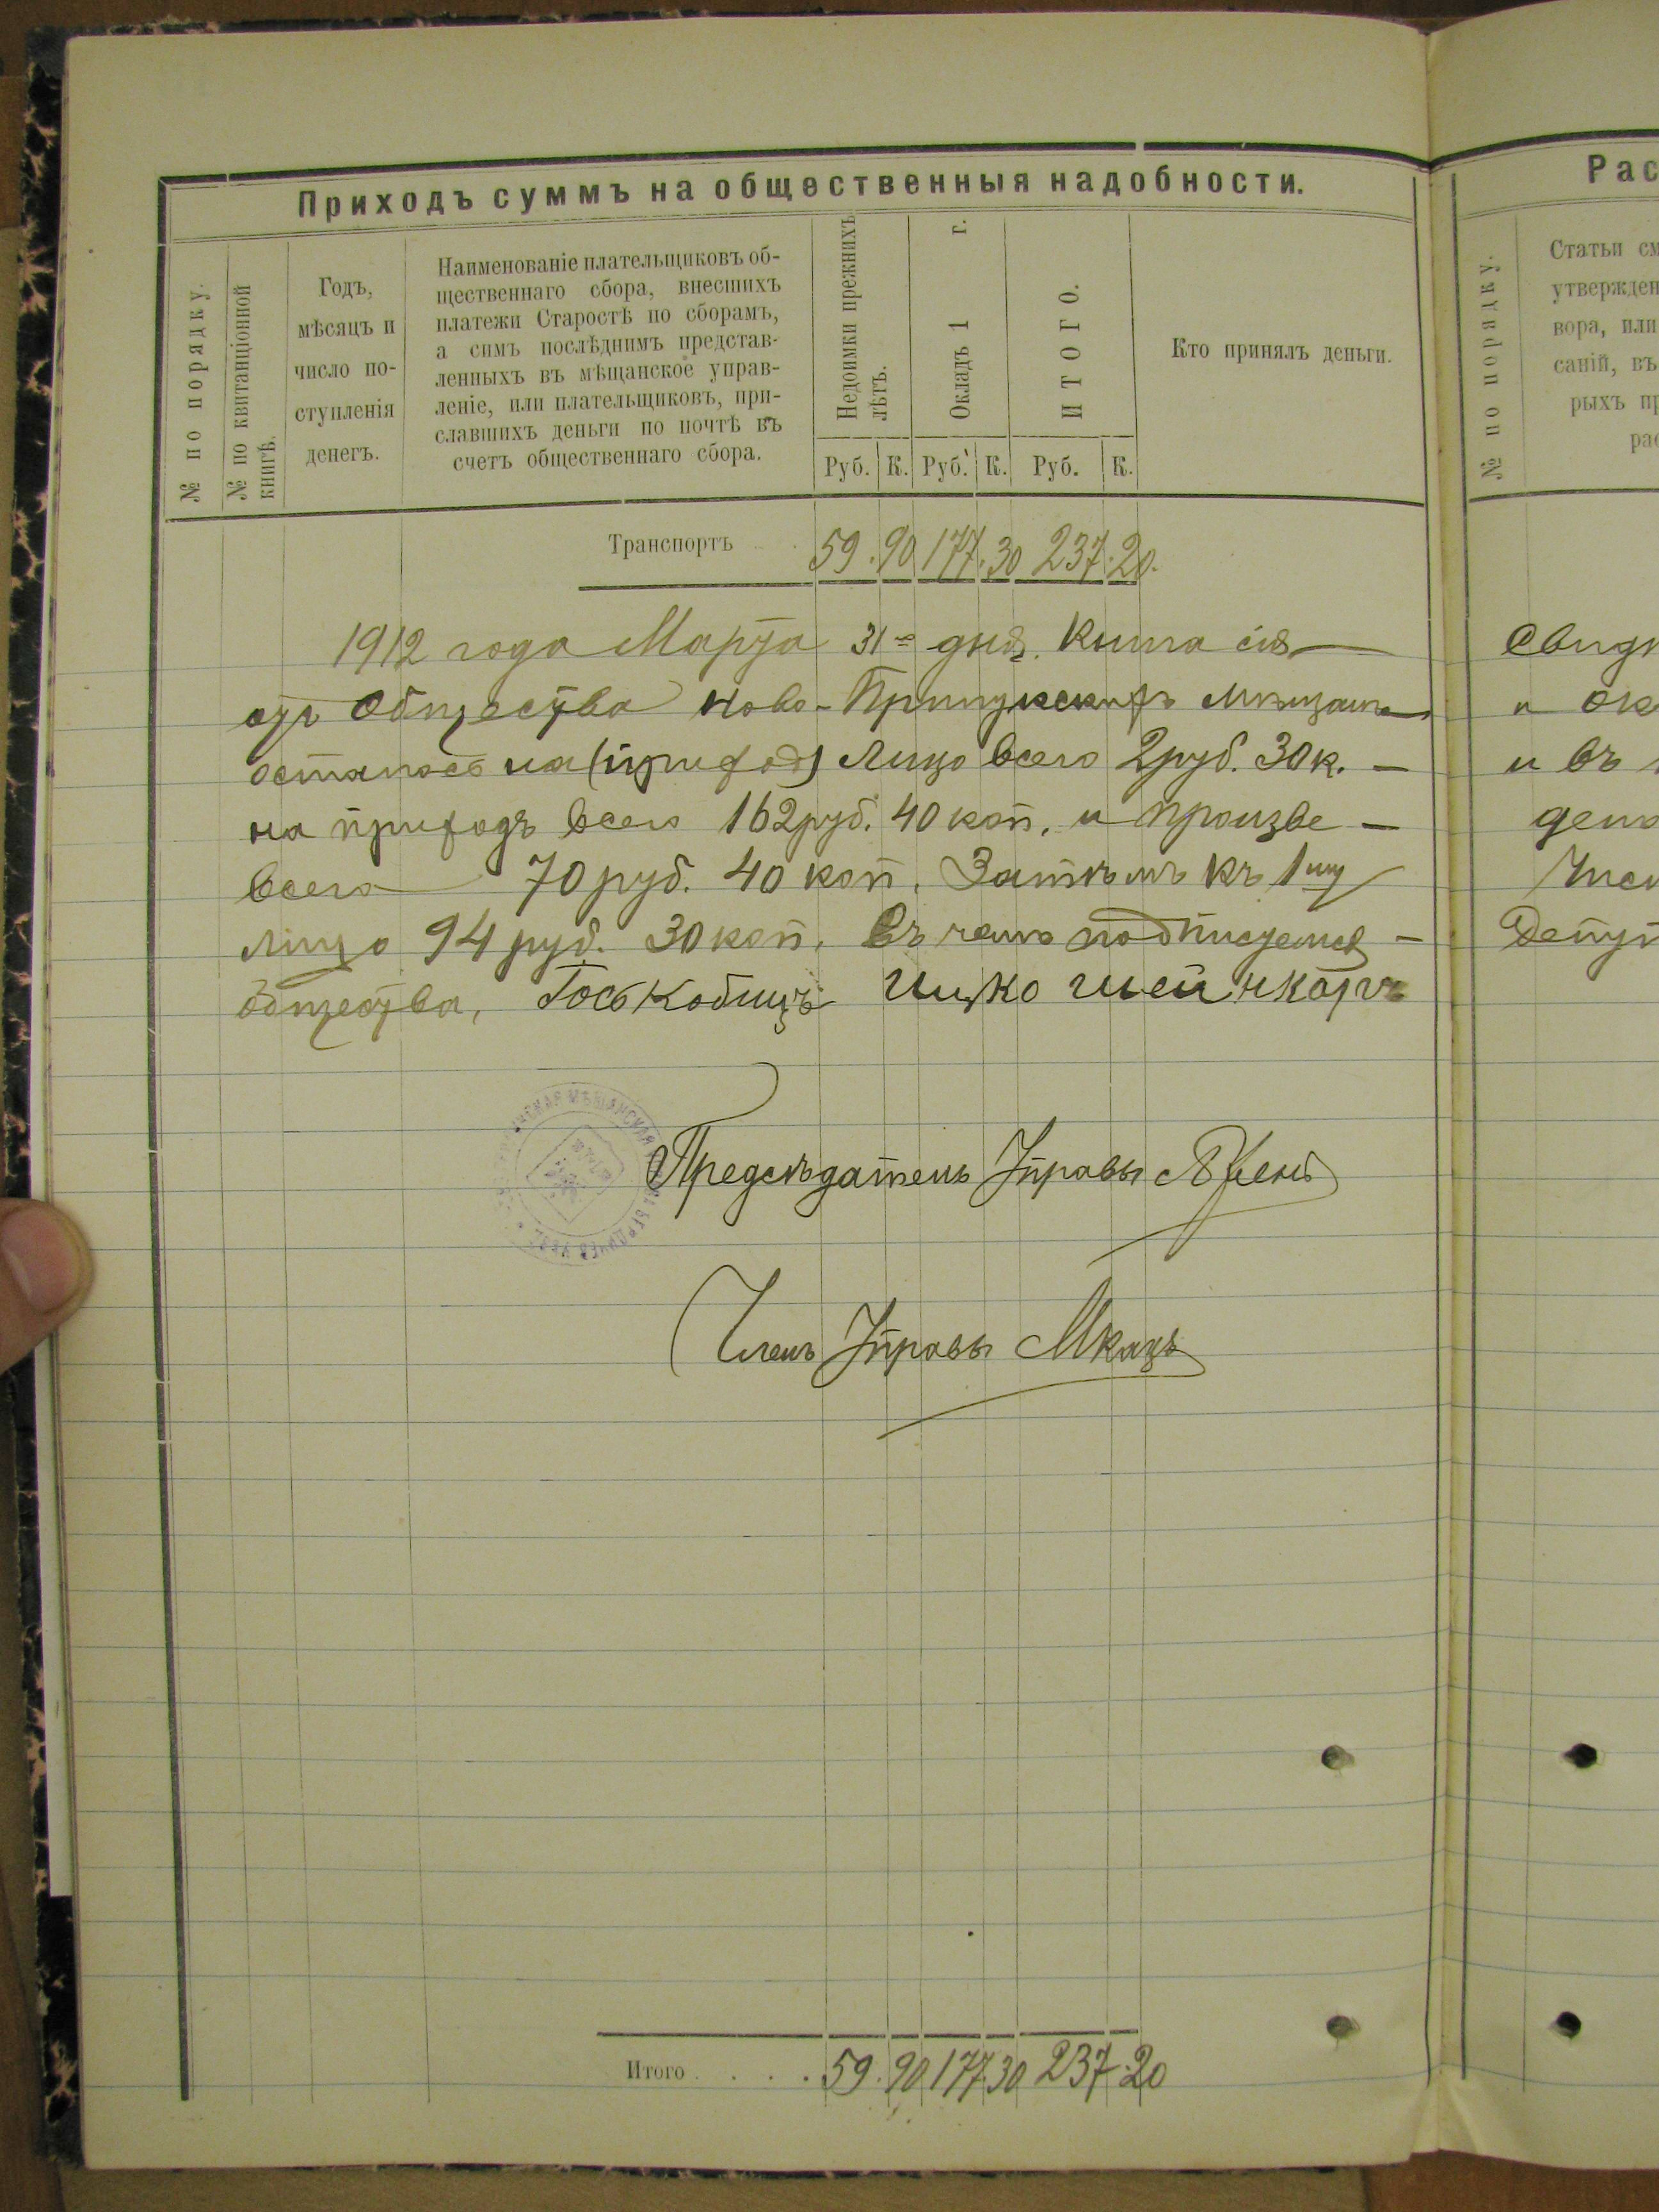 Приходъ суммъ на общественныя надобности.
№ по порядку.
№ по квитанціонной
книгѣ.
Годъ,
мѣсяцъ и
число по-
ступленія
денегъ.
Наименованіе плательщиковъ об-
щественнаго сбора, внесшихъ
платежи Старостѣ по сборамъ,
а симъ послѣднимъ представ-
ленныхъ въ мѣщанское управ-
леніе, или плательщиковъ, при-
славшихъ деньги по почтѣ въ
счетъ общественнаго сбора.
Недоимки прежнихъ
лѣтъ.
Окладъ 1 г.
ИТОГО.
Кто принялъ деньги.
Руб. К. Руб. К. Руб. К.
Транспортъ 59.90 177.30 237.20.
1912 года Марта 31го дня. Книга сія
отъ Общества Ново- Мѣщанъ
осталось на (приход) Лицо всего 2руб. 30к. —
на приходъ всего 162руб. 40 коп. и произве —
всего 70 руб. 40 коп. Затѣмъ къ 1му
лицо 94 руб. 30 коп. Въ чемъ подписуемся —
общества,
Предсѣдатель Управы
Членъ Управы МКацъ
Итого 59.90 177.30 237.20
Рас
№ по порядку.
Статьи см
утвержден
вора, или
саній, въ
рыхъ пр
рас
и ок
и въ